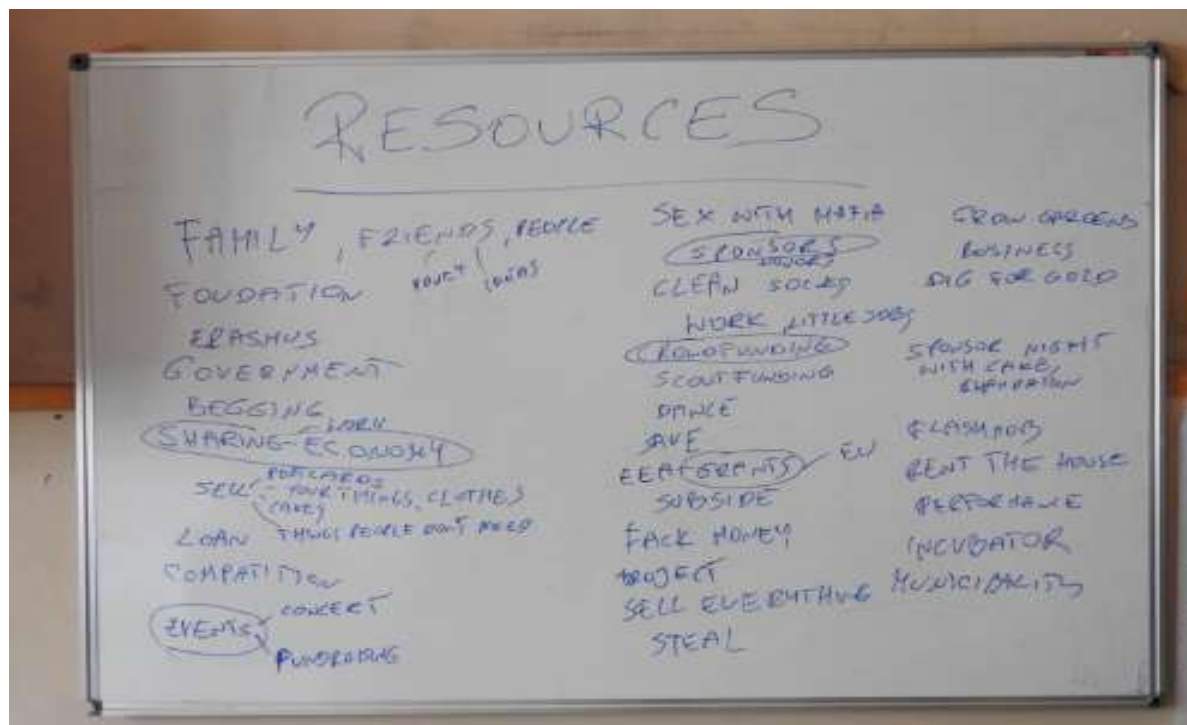 RESOURCES
FAMILY, FRIENDS, PEOPLE
MONEY IDEAS
FOUDATION
ERASMUS
GOVERNMENT
BEGGING
WORK
SHARING-ECONOMY
POSTCARDS
SELL YOUR THINGS, CLOTHES
CAKES
THINGS PEOPLE DON'T NEED
LOAN
COMPATITION
EVENTS
CONCERT
FUNDRAISING
SEX WITH MAFIA
SPONSORS
DONORS
CLEAN SOCKS
WORK, LITTLE JOBS
CROWDFUNDING
SCOUTFUNDING
DANCE
EEA GRANTS
SUBSIDE
FACK MONEY
PROJECT
SELL EVERYTHING
STEAL
GROW GARDENS
BUSINESS
DIG FOR GOLD
SPONSOR NIGHT
WITH CAKE,
FLASHMOB
RENT THE HOUSE
PERFORMANCE
INCUBATOR
MUNICIPALITY